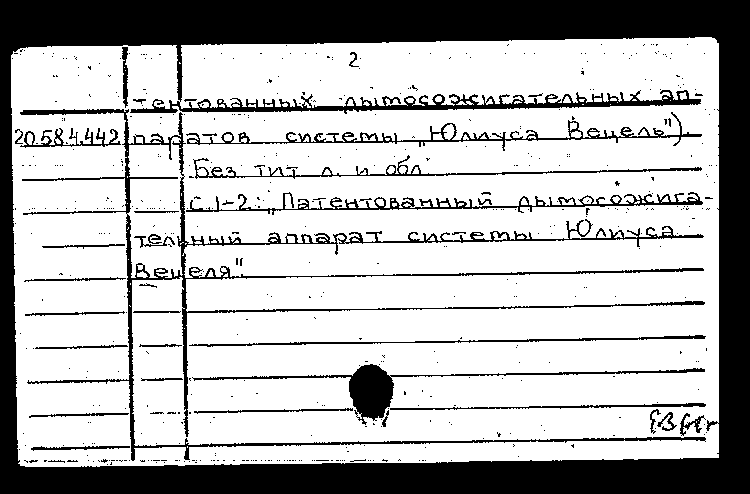 2
тентованных дымосожигательных ап-
20.58.4.442 паратов системы „Юлиуса Вецель").
Без тит л. и обл
С.1-2: „Патентованный дымосожига-
тельный аппарат системы Юлиуса
Вецеля".